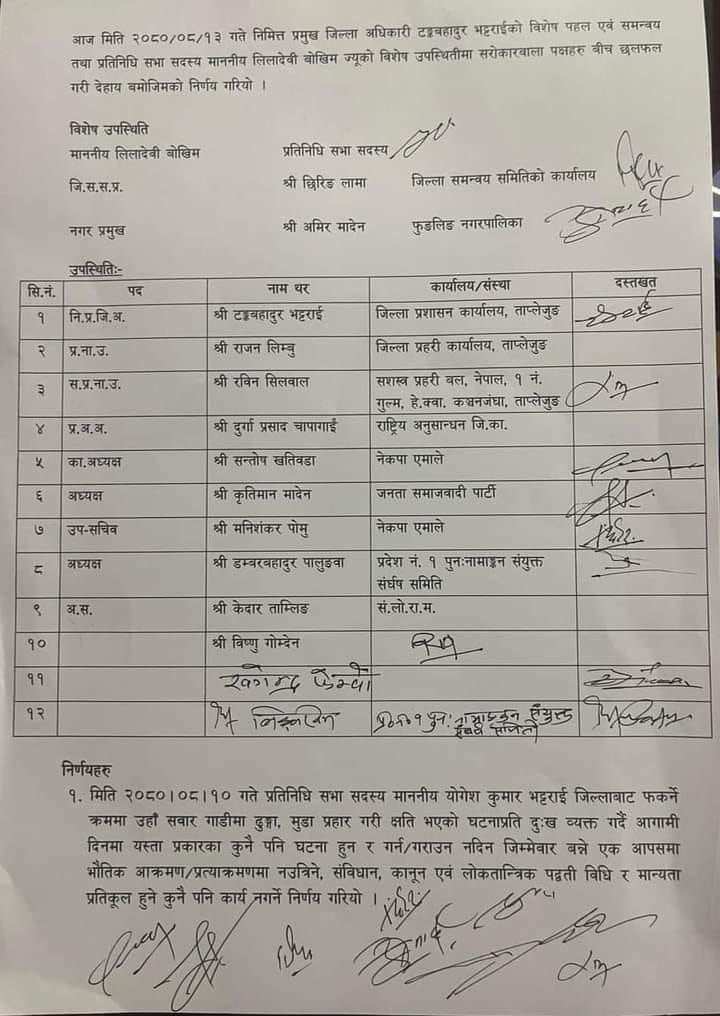 आज मिति २०८०/०८/१३ गते निमित्त प्रमुख जिल्ला अधिकारी टङ्कबहादुर भट्टराईको विशेष पहल एवं समन्वय
तथा प्रतिनिधि सभा सदस्य माननीय लिलादेवी बोखिम ज्यूको विशेष उपस्थितीमा सरोकारवाला पक्षहरु बीच छलफल
गरी देहाय बमोजिमको निर्णय गरियो ।
विशेष उपस्थिति
माननीय लिलादेवी बोखिम प्रतिनिधि सभा सदस्य
जि.स.स.प्र. श्री छिरिङ लामा जिल्ला समन्वय समितिको कार्यालय
नगर प्रमुख श्री अमिर मादेन फुङलिङ नगरपालिका
उपस्थितिः-
सि.नं. पद नाम थर कार्यालय/संस्था दस्तखत
१ नि.प्र.जि.अ. श्री टङ्कबहादुर भट्टराई जिल्ला प्रशासन कार्यालय, ताप्लेजुङ
२ प्र.ना.उ. श्री राजन लिम्बु जिल्ला प्रहरी कार्यालय, ताप्लेजुङ
३ स.प्र.ना.उ. श्री रविन सिलवाल सशस्त्र प्रहरी बल, नेपाल, १ नं.
गुल्म, हे.क्वा. कञ्चनजंघा, ताप्लेजुङ
४ प्र.अ.अ. श्री दुर्गा प्रसाद चापागाईं राष्ट्रिय अनुसान्धन जि.का.
५ का.अध्यक्ष श्री सन्तोष खतिवडा नेकपा एमाले
६ अध्यक्ष श्री कृतिमान मादेन जनता समाजवादी पार्टी
७ उप-सचिव श्री मनिशंकर पोमु नेकपा एमाले
८ अध्यक्ष श्री डम्बरबहादुर पालुङवा प्रदेश नं. १ पुनःनामाङ्कन संयुक्त
संर्घष समिति
९ अ.स. श्री केदार ताम्लिङ सं.लो.रा.म.
१० श्री विष्णु गोम्देन
११ खगेन्द्र फेम्बो
१२ प्र०न० १ पुनः नामाङ्कन संयुक्त
संघर्ष समिती
निर्णयहरु
१. मिति २०८०।०८।१० गते प्रतिनिधि सभा सदस्य माननीय योगेश कुमार भट्टराई जिल्लाबाट फर्कने
क्रममा उहाँ सवार गाडीमा ढुङ्गा, मुडा प्रहार गरी क्षति भएको घटनाप्रति दुःख व्यक्त गर्दै आगामी
दिनमा यस्ता प्रकारका कुनै पनि घटना हुन र गर्न/गराउन नदिन जिम्मेवार बन्ने एक आपसमा
भौतिक आक्रमण/प्रत्याक्रमणमा नउत्रिने, संविधान, कानून एवं लोकतान्त्रिक पद्वती विधि र मान्यता
प्रतिकूल हुने कुनै पनि कार्य नगर्ने निर्णय गरियो ।